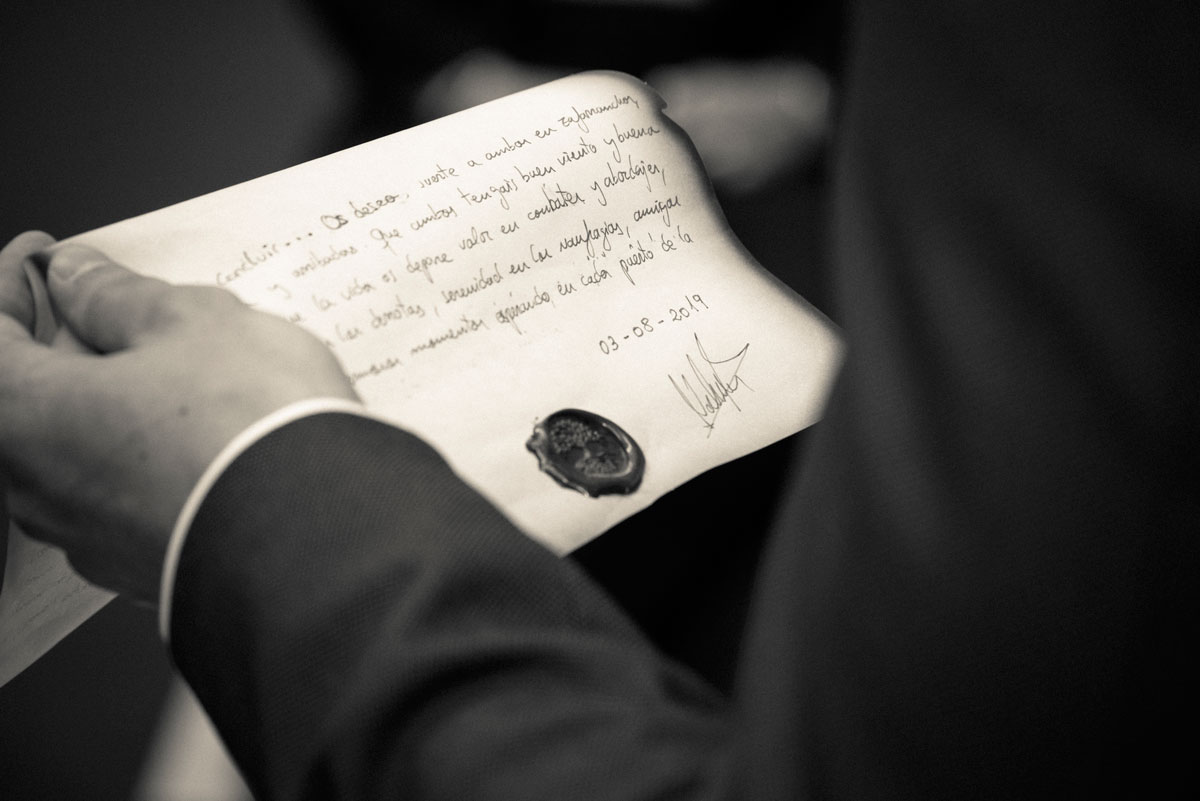 concluir... Os deseo, suerte a ambos en zafarranchos,
y arribadas. Que ambos tengais buen viento y buena
la vida os depare valor en combates y abordajes,
las derrotas, serenidad en los naufragios, amigos
momentos esperando, en cada puerto de la
03-08-2019